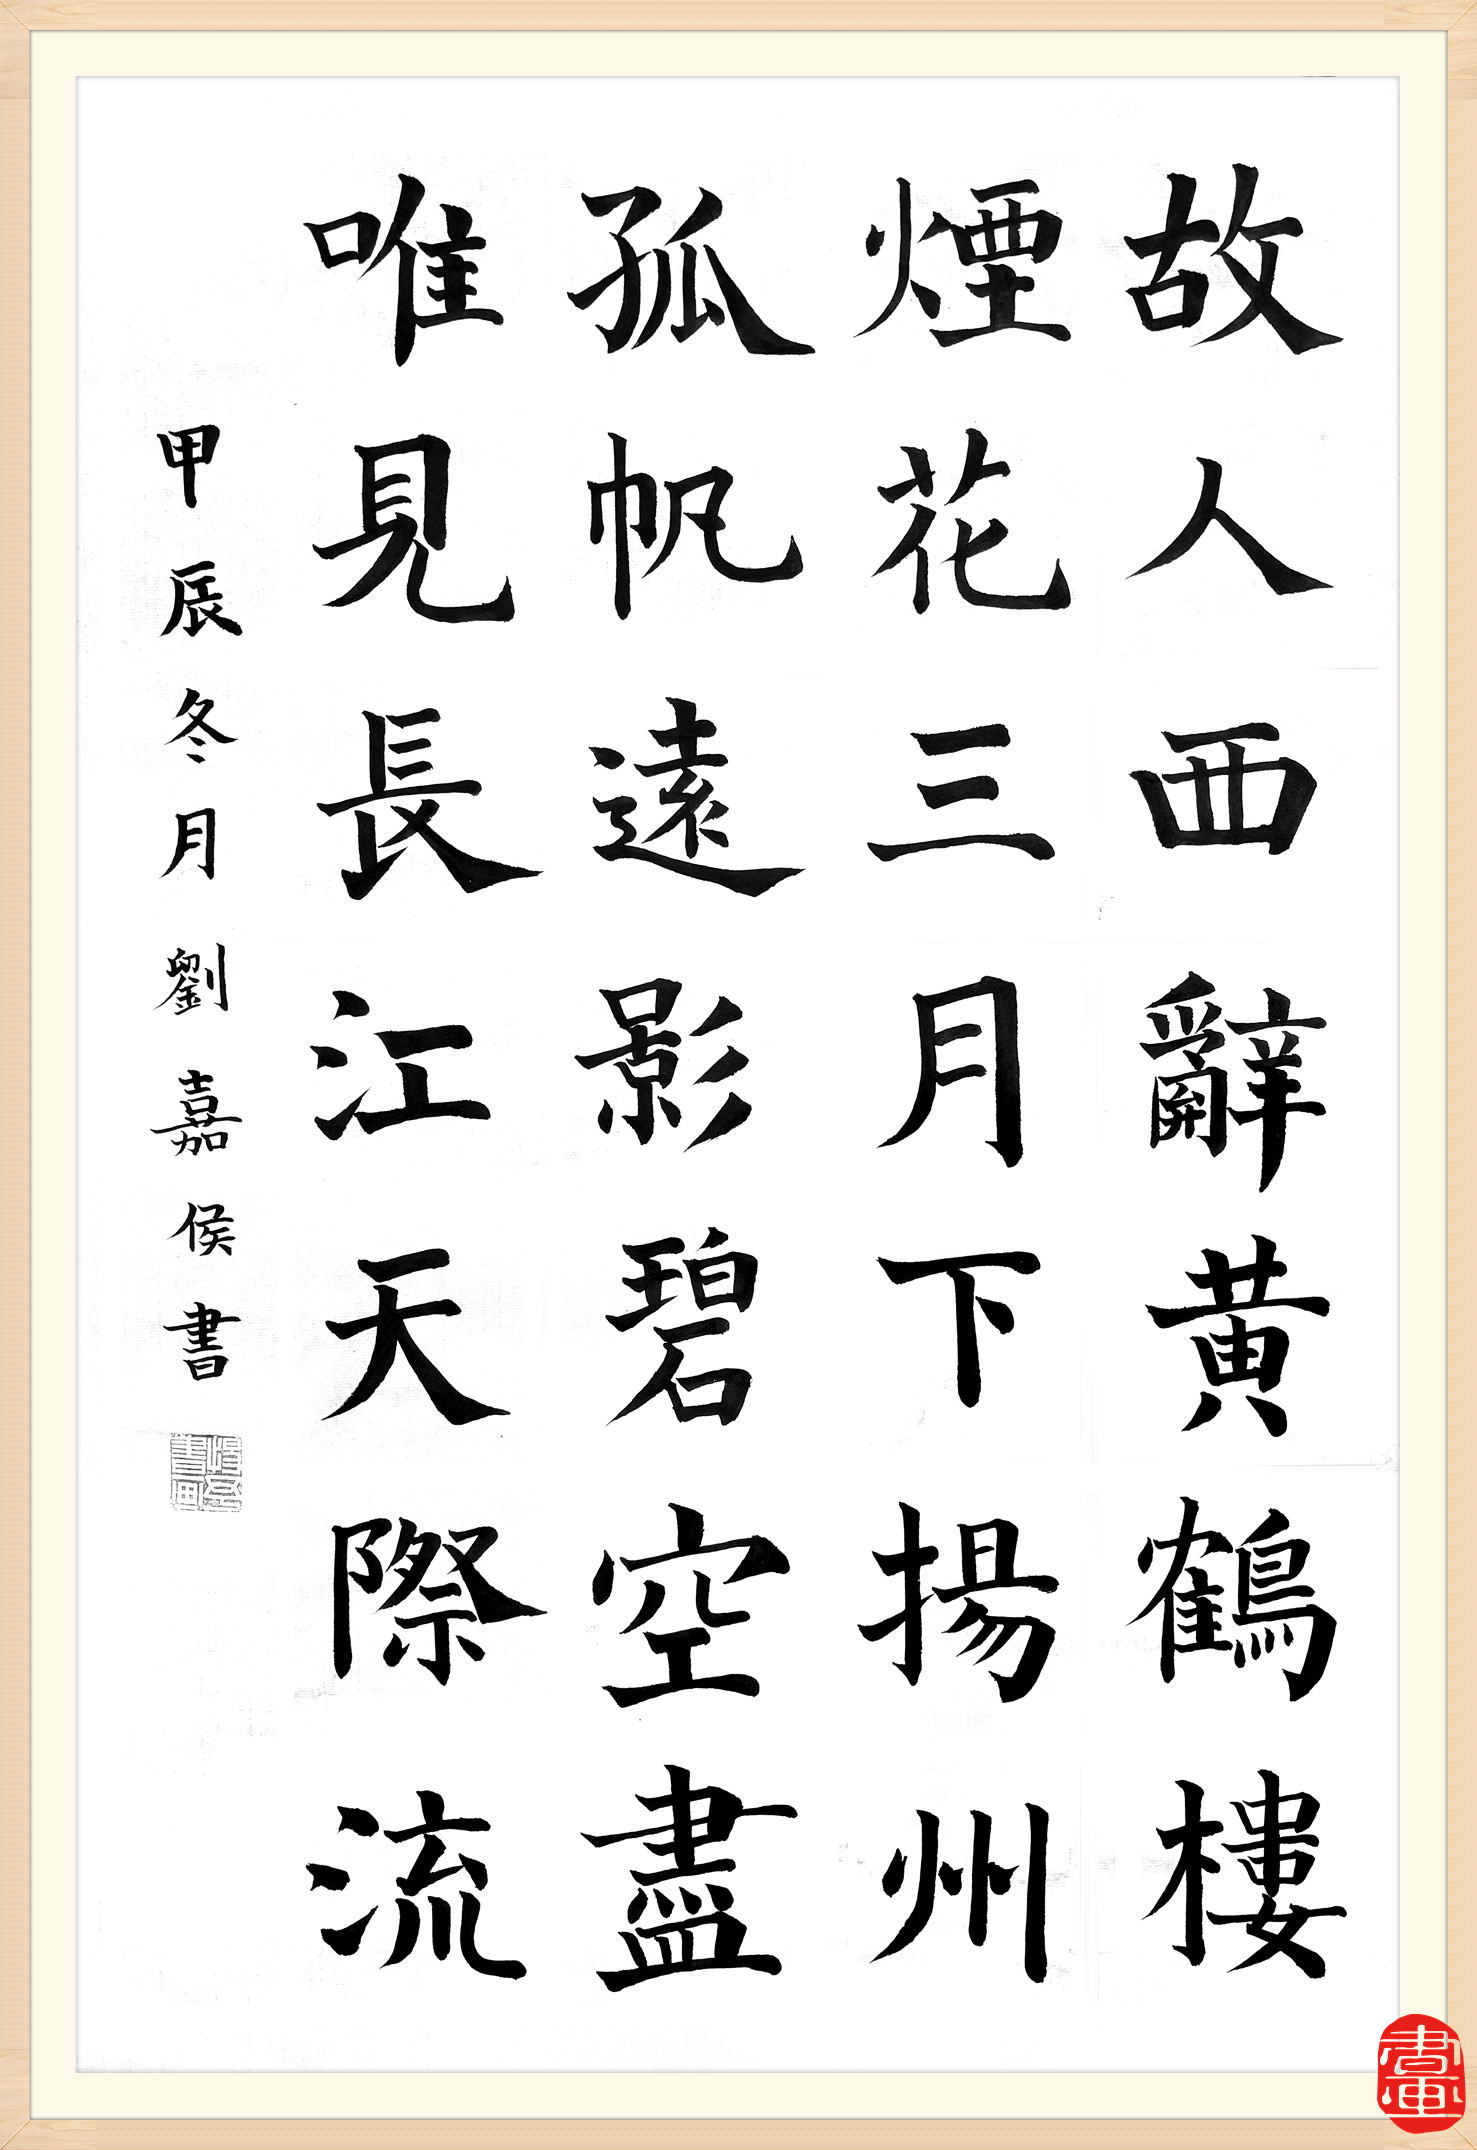 故人西辭黄鶴樓
煙花三月下揚州
孤帆遠影碧空盡
唯見長江天際流
甲辰冬月劉嘉侯書